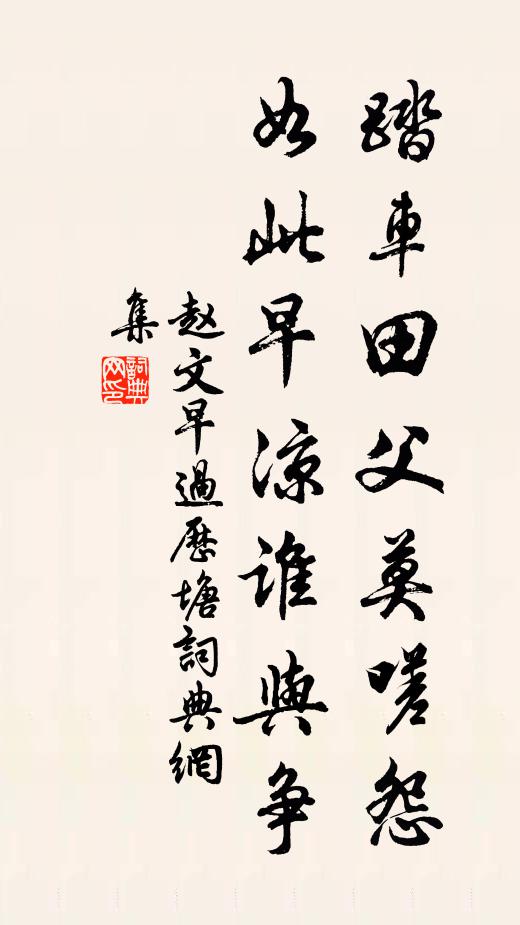 踏車田父莫嗟怨
如此早涼誰與争
赵文早過歷塘詞典網
集
詞典网印